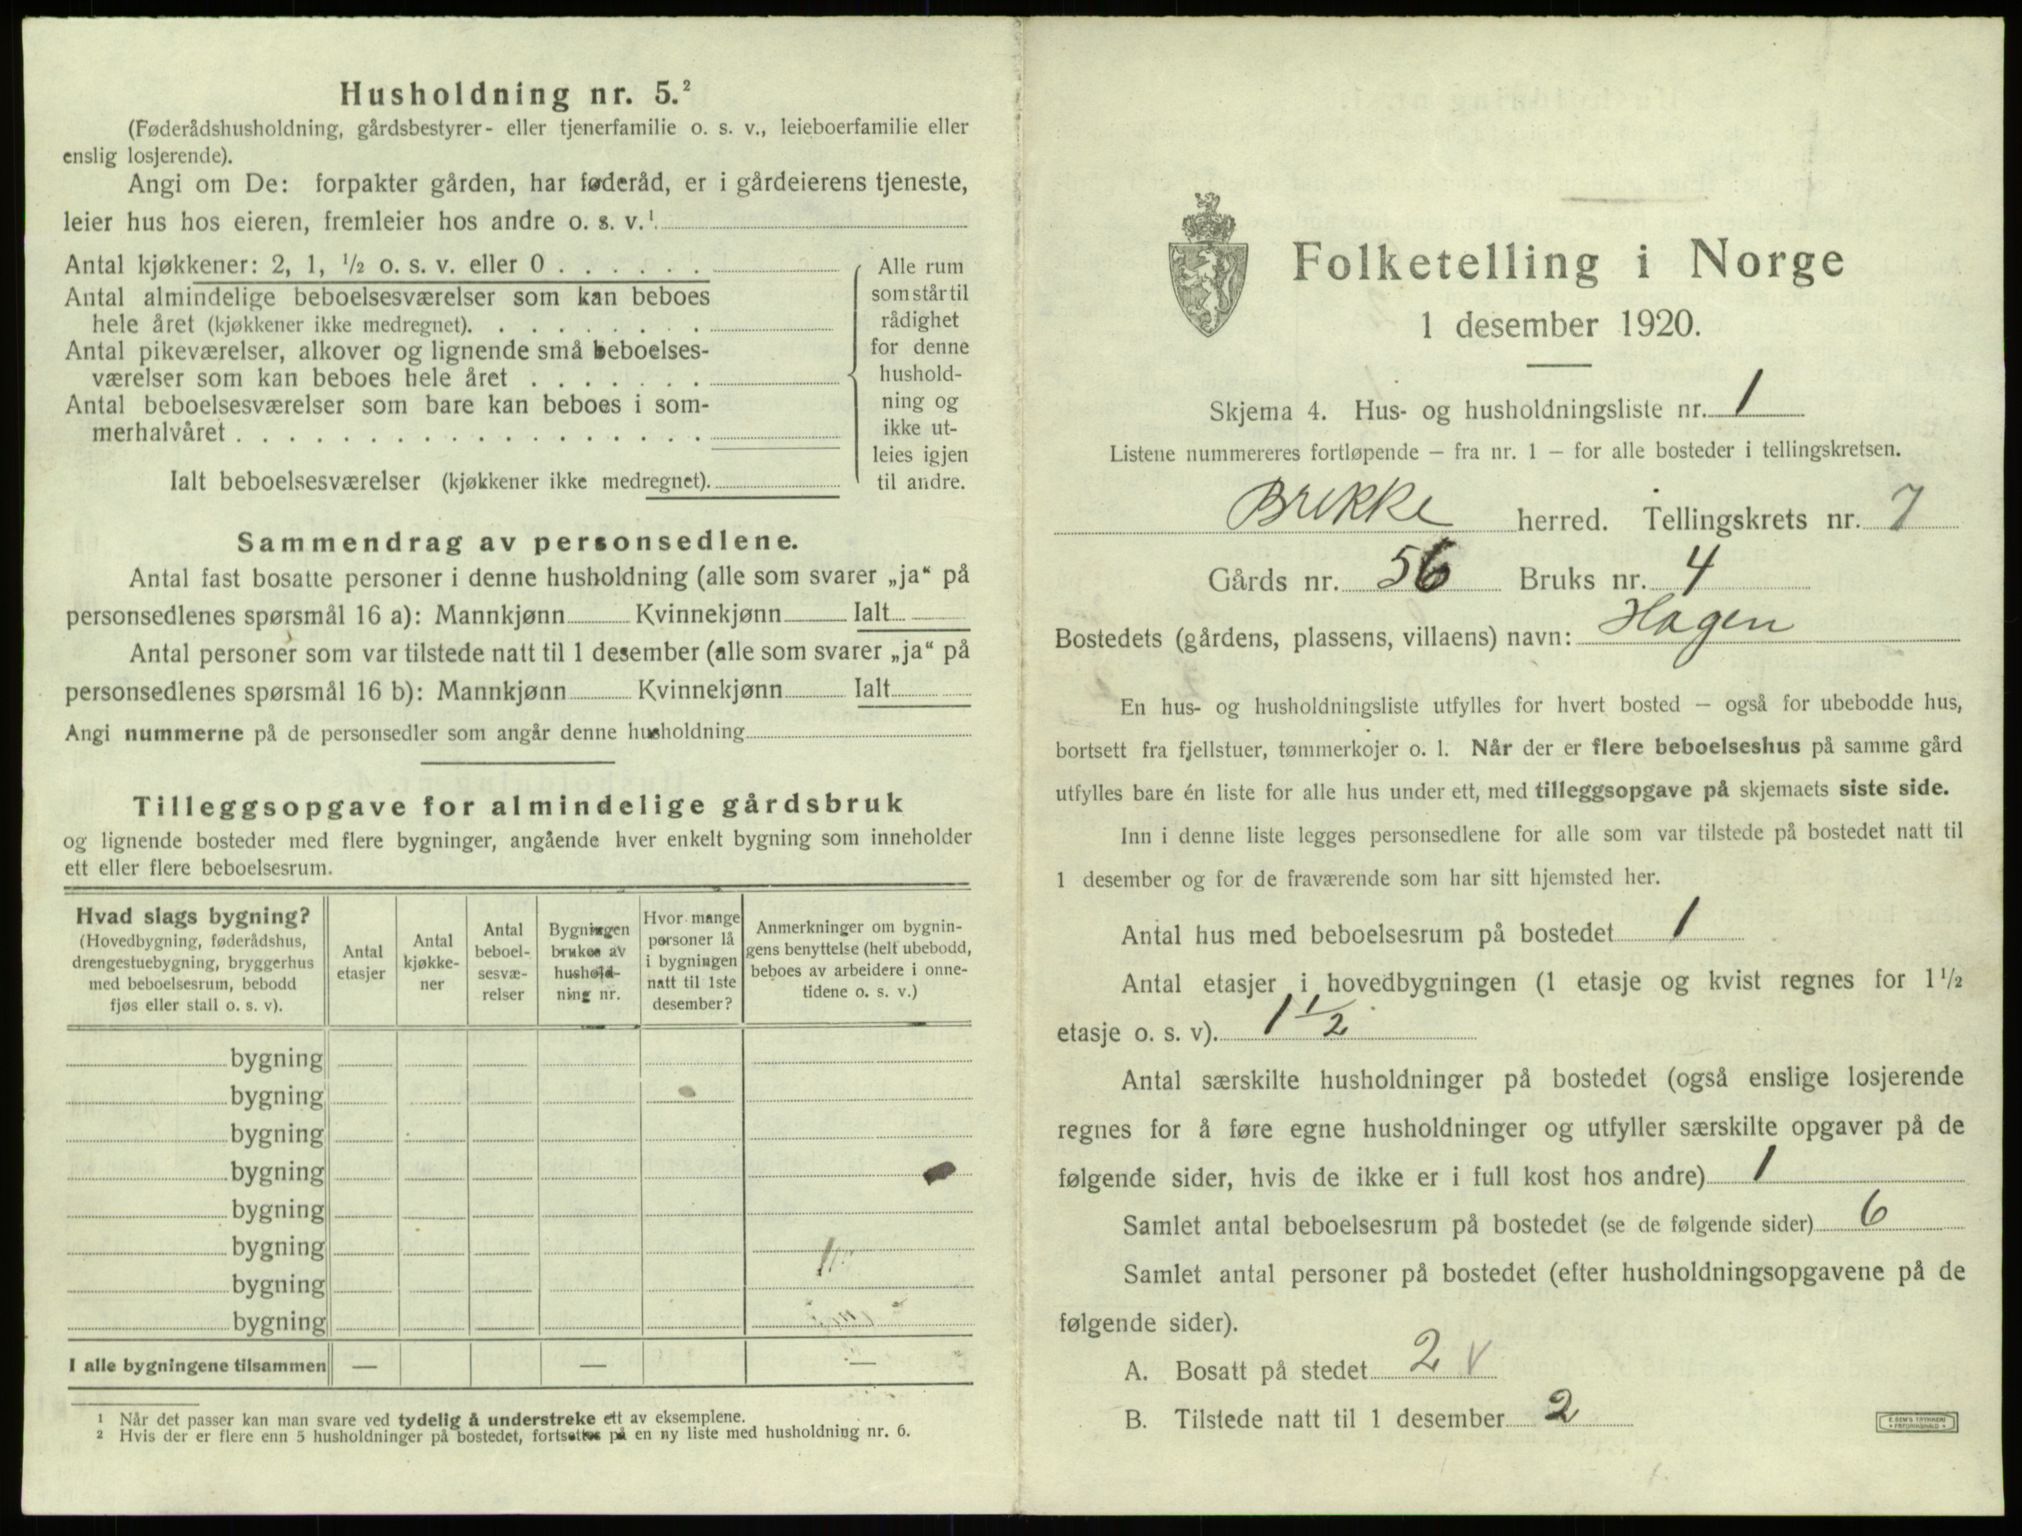 Husholdning nr. 5.²
(Føderådshusholdning, gårdsbestyrer- eller tjenerfamilie o. s. v., leieboerfamilie eller
enslig losjerende).
Angi om De: forpakter gården, har føderåd, er i gårdeierens tjeneste,
leier hus hos eieren, fremleier hos andre o. s. v.¹
Antal kjøkkener: 2, 1, ½ o. s. v. eller 0 . . . . . .
Antal almindelige beboelsesværelser som kan beboes
hele året (kjøkkener ikke medregnet). . . . . . . . .
Antal pikeværelser, alkover og lignende små beboelses-
værelser som kan beboes hele året . . . . . . .
Antal beboelsesværelser som bare kan beboes i som-
merhalvåret . . . . . . . . . . . . . . . . . .
Ialt beboelsesværelser (kjøkkener ikke medregnet).
Alle rum
som står til
rådighet
for denne
hushold-
ning og
ikke ut-
leies igjen
til andre.
Sammendrag av personsedlene.
Antal fast bosatte personer i denne husholdning (alle som svarer „ja“ på
personsedlenes spørsmål 16 a): Mannkjønn Kvinnekjønn Ialt
Antal personer som var tilstede natt til 1 desember (alle som svarer „ja“ på
personsedlenes spørsmål 16 b): Mannkjønn Kvinnekjønn Ialt
Angi nummerne på de personsedler som angår denne husholdning
Tilleggsopgave for almindelige gårdsbruk
og lignende bosteder med flere bygninger, angående hver enkelt bygning som inneholder
ett eller flere beboelsesrum.
Hvad slags bygning?
(Hovedbygning, føderådshus,
drengestuebygning, bryggerhus
med beboelsesrum, bebodd
fjøs eller stall o. s. v).
Antal
etasjer
Antal
kjøkke-
ner
Antal
beboel-
sesvæ-
relser
Bygningen
brukes av
hushold-
ning nr.
Hvor mange
personer lå
i bygningen
natt til 1ste
desember?
Anmerkninger om bygnin-
gens benyttelse (helt ubebodd,
beboes av arbeidere i onne-
tidene o. s. v.)
bygning
bygning
bygning
bygning
bygning
bygning
bygning
bygning
I alle bygningene tilsammen — — —
¹ Når det passer kan man svare ved tydelig å understreke ett av eksemplene.
² Hvis der er flere enn 5 husholdninger på bostedet, fortsettes på en ny liste med husholdning nr. 6.
Folketelling i Norge
1 desember 1920.
Skjema 4. Hus- og husholdningsliste nr. 1
Listene nummereres fortløpende – fra nr. 1 – for alle bosteder i tellingskretsen.
Brekke herred. Tellingskrets nr. 7
Gårds nr. 56 Bruks nr. 4
Bostedets (gårdens, plassens, villaens) navn: Hagen
En hus- og husholdningsliste utfylles for hvert bosted – også for ubebodde hus,
bortsett fra fjellstuer, tømmerkojer o. l. Når der er flere beboelseshus på samme gård
utfylles bare én liste for alle hus under ett, med tilleggsopgave på skjemaets siste side.
Inn i denne liste legges personsedlene for alle som var tilstede på bostedet natt til
1 desember og for de fraværende som har sitt hjemsted her.
Antal hus med beboelsesrum på bostedet 1
Antal etasjer i hovedbygningen (1 etasje og kvist regnes for 1½
etasje o. s. v). 1 ½
Antal særskilte husholdninger på bostedet (også enslige losjerende
regnes for å føre egne husholdninger og utfyller særskilte opgaver på de
følgende sider, hvis de ikke er i full kost hos andre) 1
Samlet antal beboelsesrum på bostedet (se de følgende sider) 6
Samlet antal personer på bostedet (efter husholdningsopgavene på de
følgende sider).
A. Bosatt på stedet 2 v
B. Tilstede natt til 1 desember 2
E. SEM'S TRYKKERI
FREDRIKSHALD